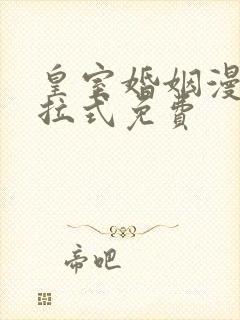 皇室婚姻漫
拉式免费
帝吧